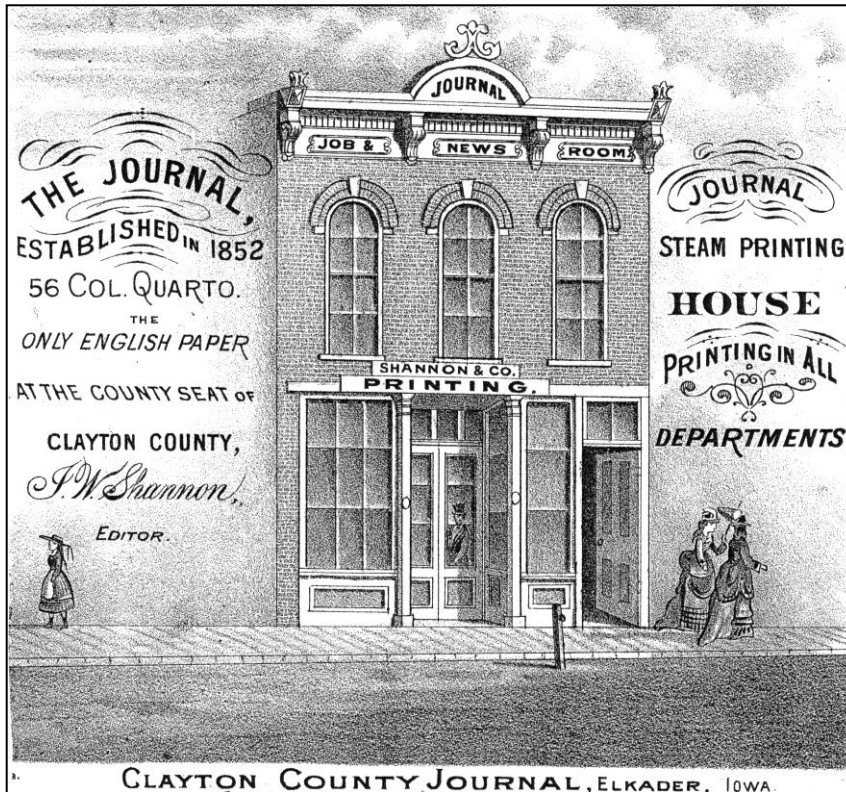 JOURNAL
JOB & NEWS ROOM
THE JOURNAL,
ESTABLISHED IN 1852
56 COL. QUARTO.
THE
ONLY ENGLISH PAPER
AT THE COUNTY SEAT OF
CLAYTON COUNTY,
J. W. Shannon,
EDITOR.
SHANNON & CO.
PRINTING.
JOURNAL
STEAM PRINTING
HOUSE
PRINTING IN ALL
DEPARTMENTS
CLAYTON COUNTY JOURNAL, ELKADER, IOWA.